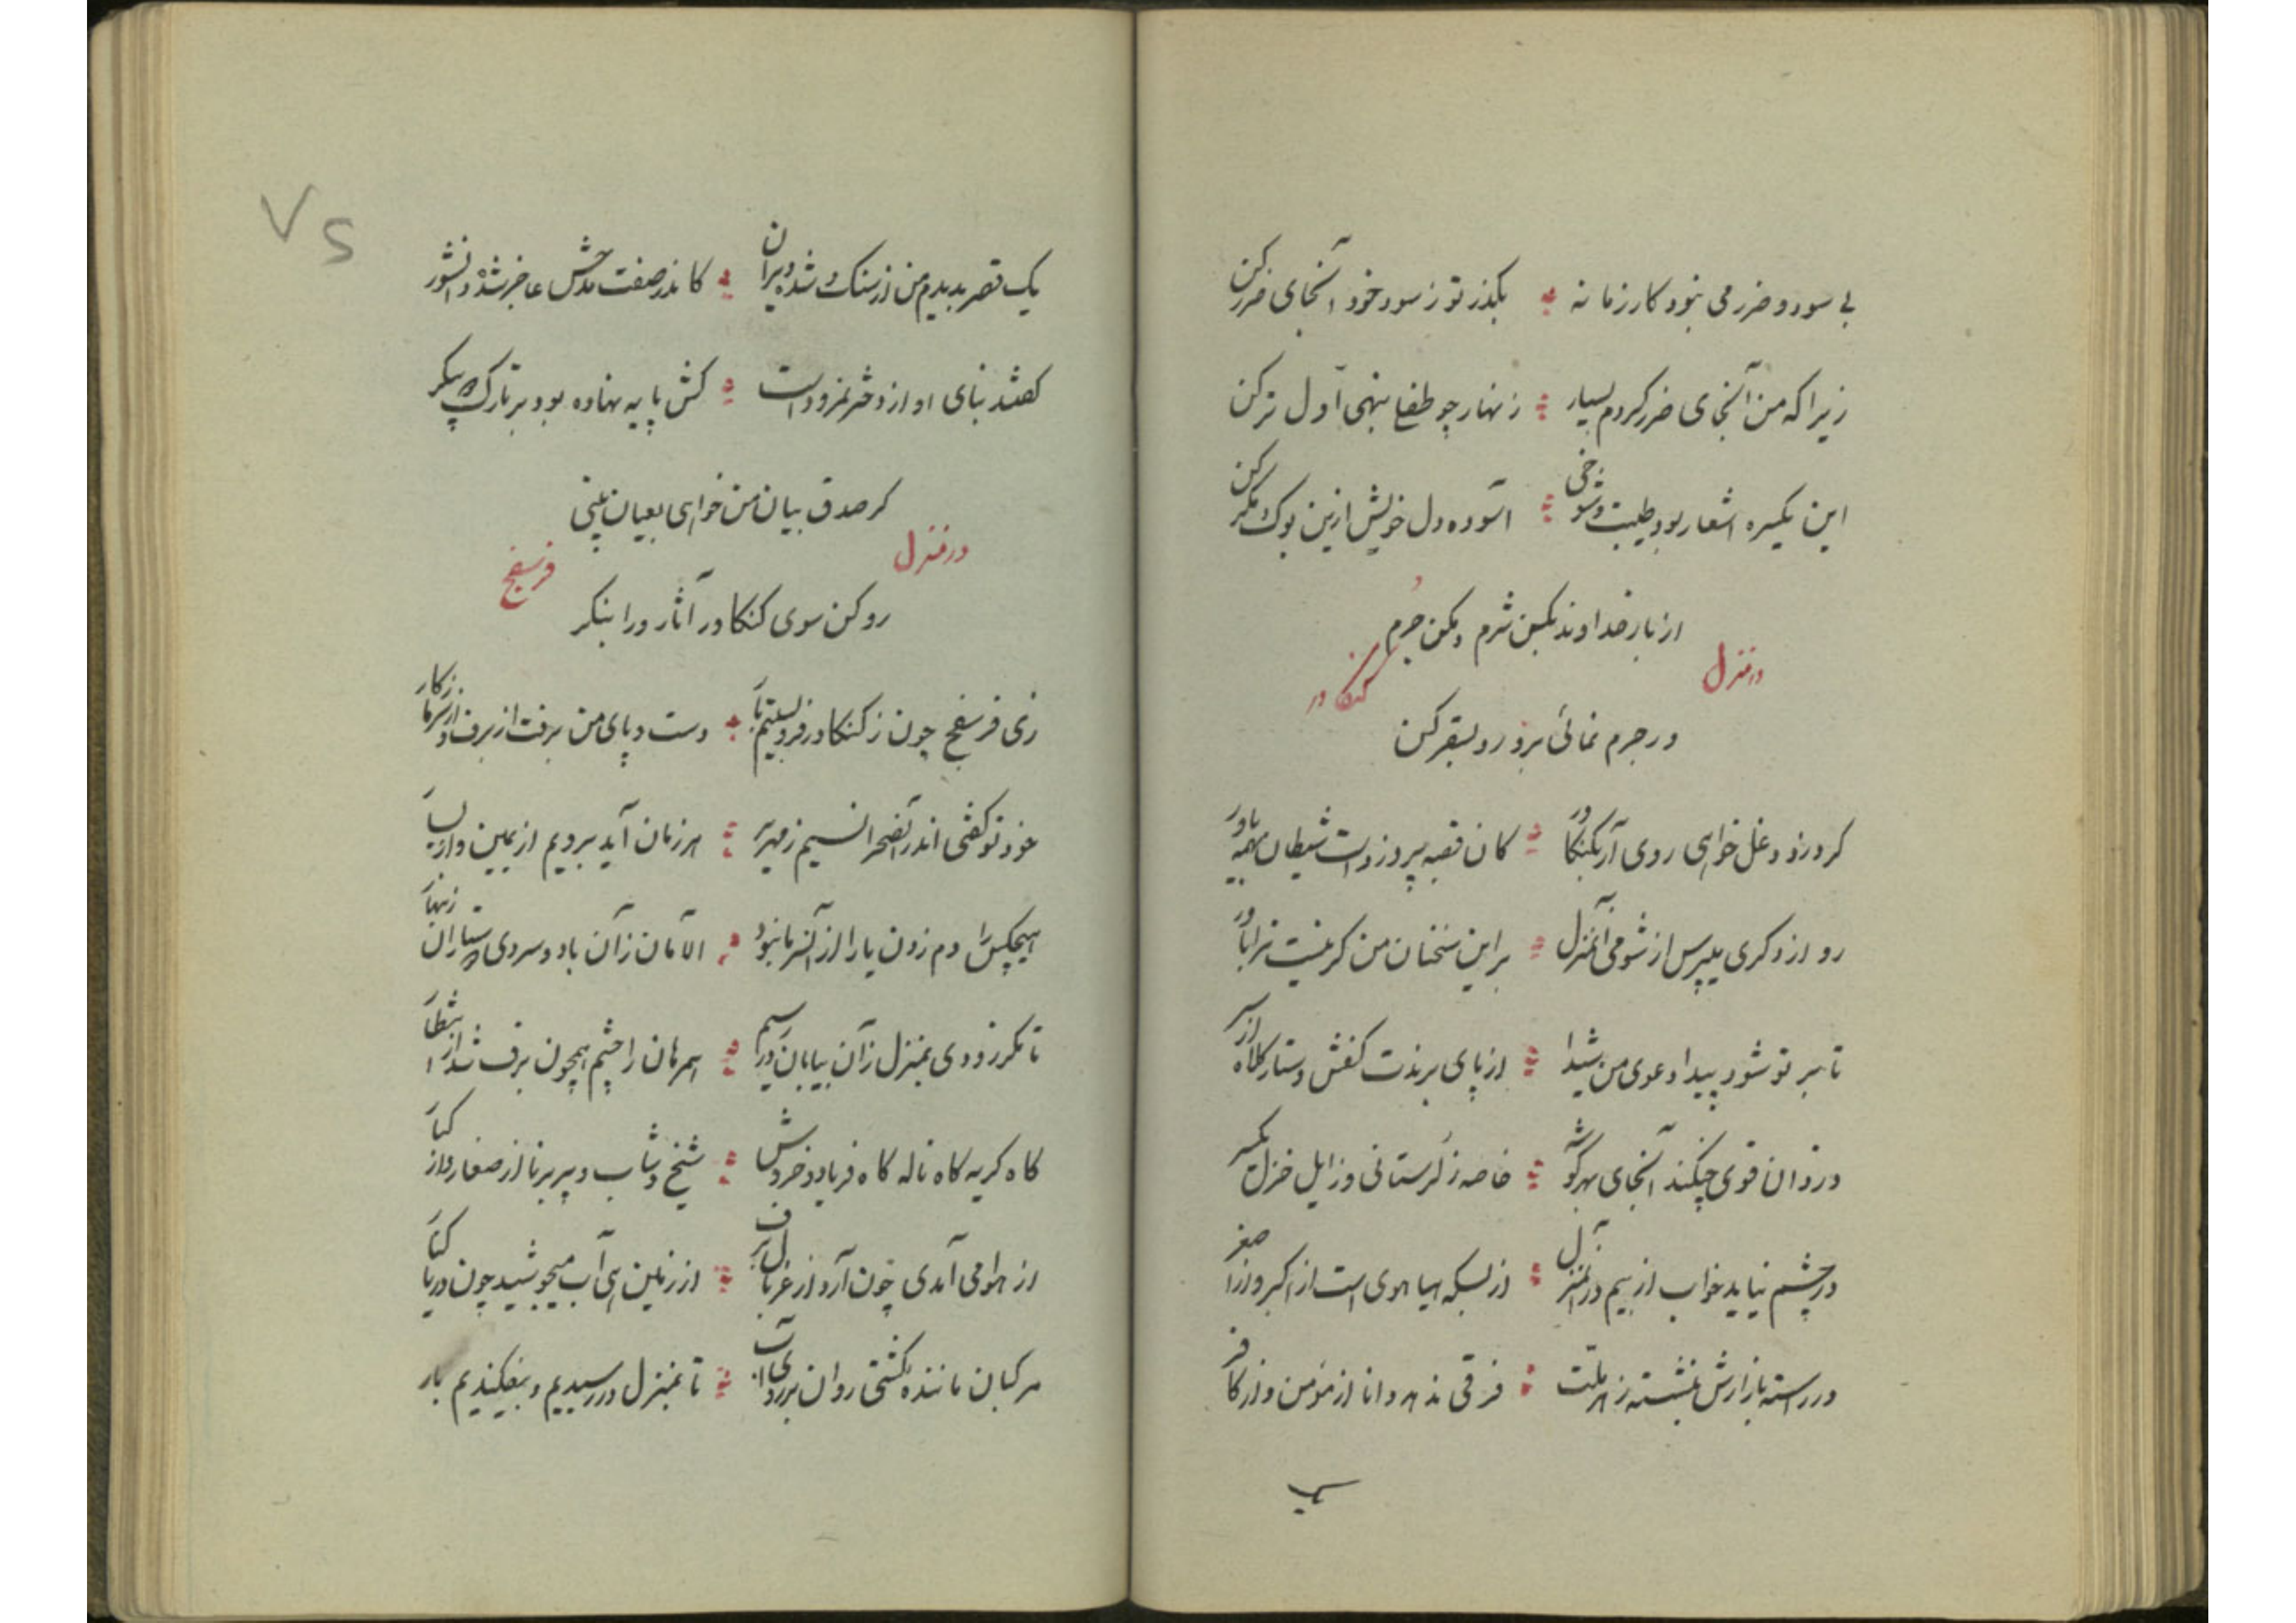 بی سود و ضرر می نبود کار زمانه بگذر تو ز سود خود آنجای ضرر کن
زیرا که من آنجای ضرر کردم بسیار زنهار چو طفلی بنهی اول تر کن
این یکسره اشعار بود طیبت و شوخی آسوده دل خویش ازین بوک و مگر کن
از بار خداوند بکن شرم و مکن جرم
در منزل کنکاور
ور جرم نمائی برو رو بسقر کن
کر دزد و دغل خواهی روی آر بکنکاور کان قصبه پیروزد است شیطان همه یاور
رو از دکری بپرس از شومی آنمنزل بر این سخنان من کر نیست ترا باور
تا بر تو شود پیدا دعوی من شیدا از پای برندت کفش دستار و کلاه از سر
دزدان قوی چنکند آنجای بهر کوشه خاصه ز لرستانی وز ایل خزل یکسر
در چشم نیاید خواب از بیم در آنمنزل از بسکه هیاهوی است از اکبر و از اصغر
در رسته بازارش بنشسته ز هر ملت فرقی ندهد دانا از مؤمن و از کافر
یک
یک قصر بدیدم من از سنک شده ویران کاندر صفت مدحش عاجز شده دانشور
کفتند بنای او از دختر نمرود است کش پایه نهاده بود بر تارک پیکر
کر صدق بیان من خواهی بعیان بینی
در منزل فرسفج
رو کن سوی کنکاور آثار ورا بنکر
زی فرسفج چون ز کنکاور فرو بستیم بار دست و پای من برفت از برف و از سرما ز کار
خود تو کفتی اندر آنصحرا نسیم زمهریر هر زمان آید برویم از یمین و از یسار
هیچکس را دم زدن یارا از آن سرما نبود الامان زآن باد و سردی زنهار
تا مکر زودی بمنزل زآن بیابان در رسیم همرهان را چشم همچون برف شد از انتظار
کاه کریه کاه ناله کاه فریاد و خروش شیخ و شاب و پیر و برنا از صغار و از کبار
از هوا می آمدی چون آرد از غربال برف از زمین هی آب میجوشید چون دریا کنار
مرکبان ماننده کشتی روان بر روی آب تا بمنزل در رسیدیم و بیفکندیم بار
۷۵